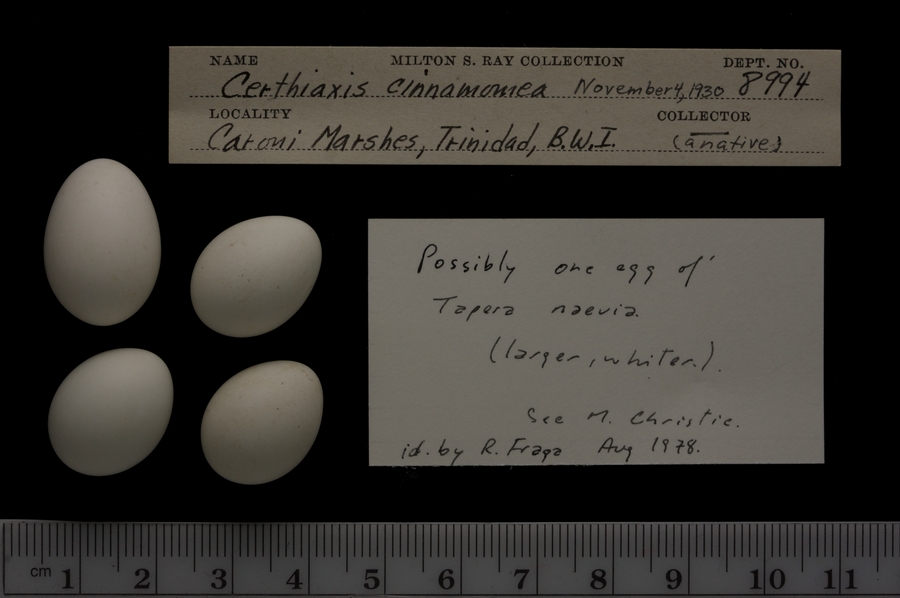 NAME MILTON S. RAY COLLECTION DEPT. NO.
Certhiaxis cinnamomea November 4, 1930 8994
LOCALITY COLLECTOR
Caroni Marshes, Trinidad, B.W.I. (a native)
Possibly one egg of
Tapera naevia.
(larger, whiter).
See M. Christie.
id. by R. Fraga Aug 1978.
cm 1 2 3 4 5 6 7 8 9 10 11